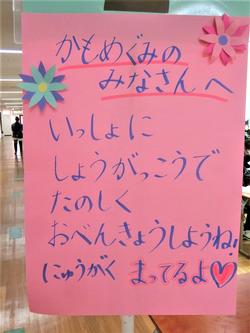 かもめぐみの
みなさんへ
いっしょに
しょうがっこうで
たのしく
おべんきょうしようね!
にゅうがく まってるよ♡